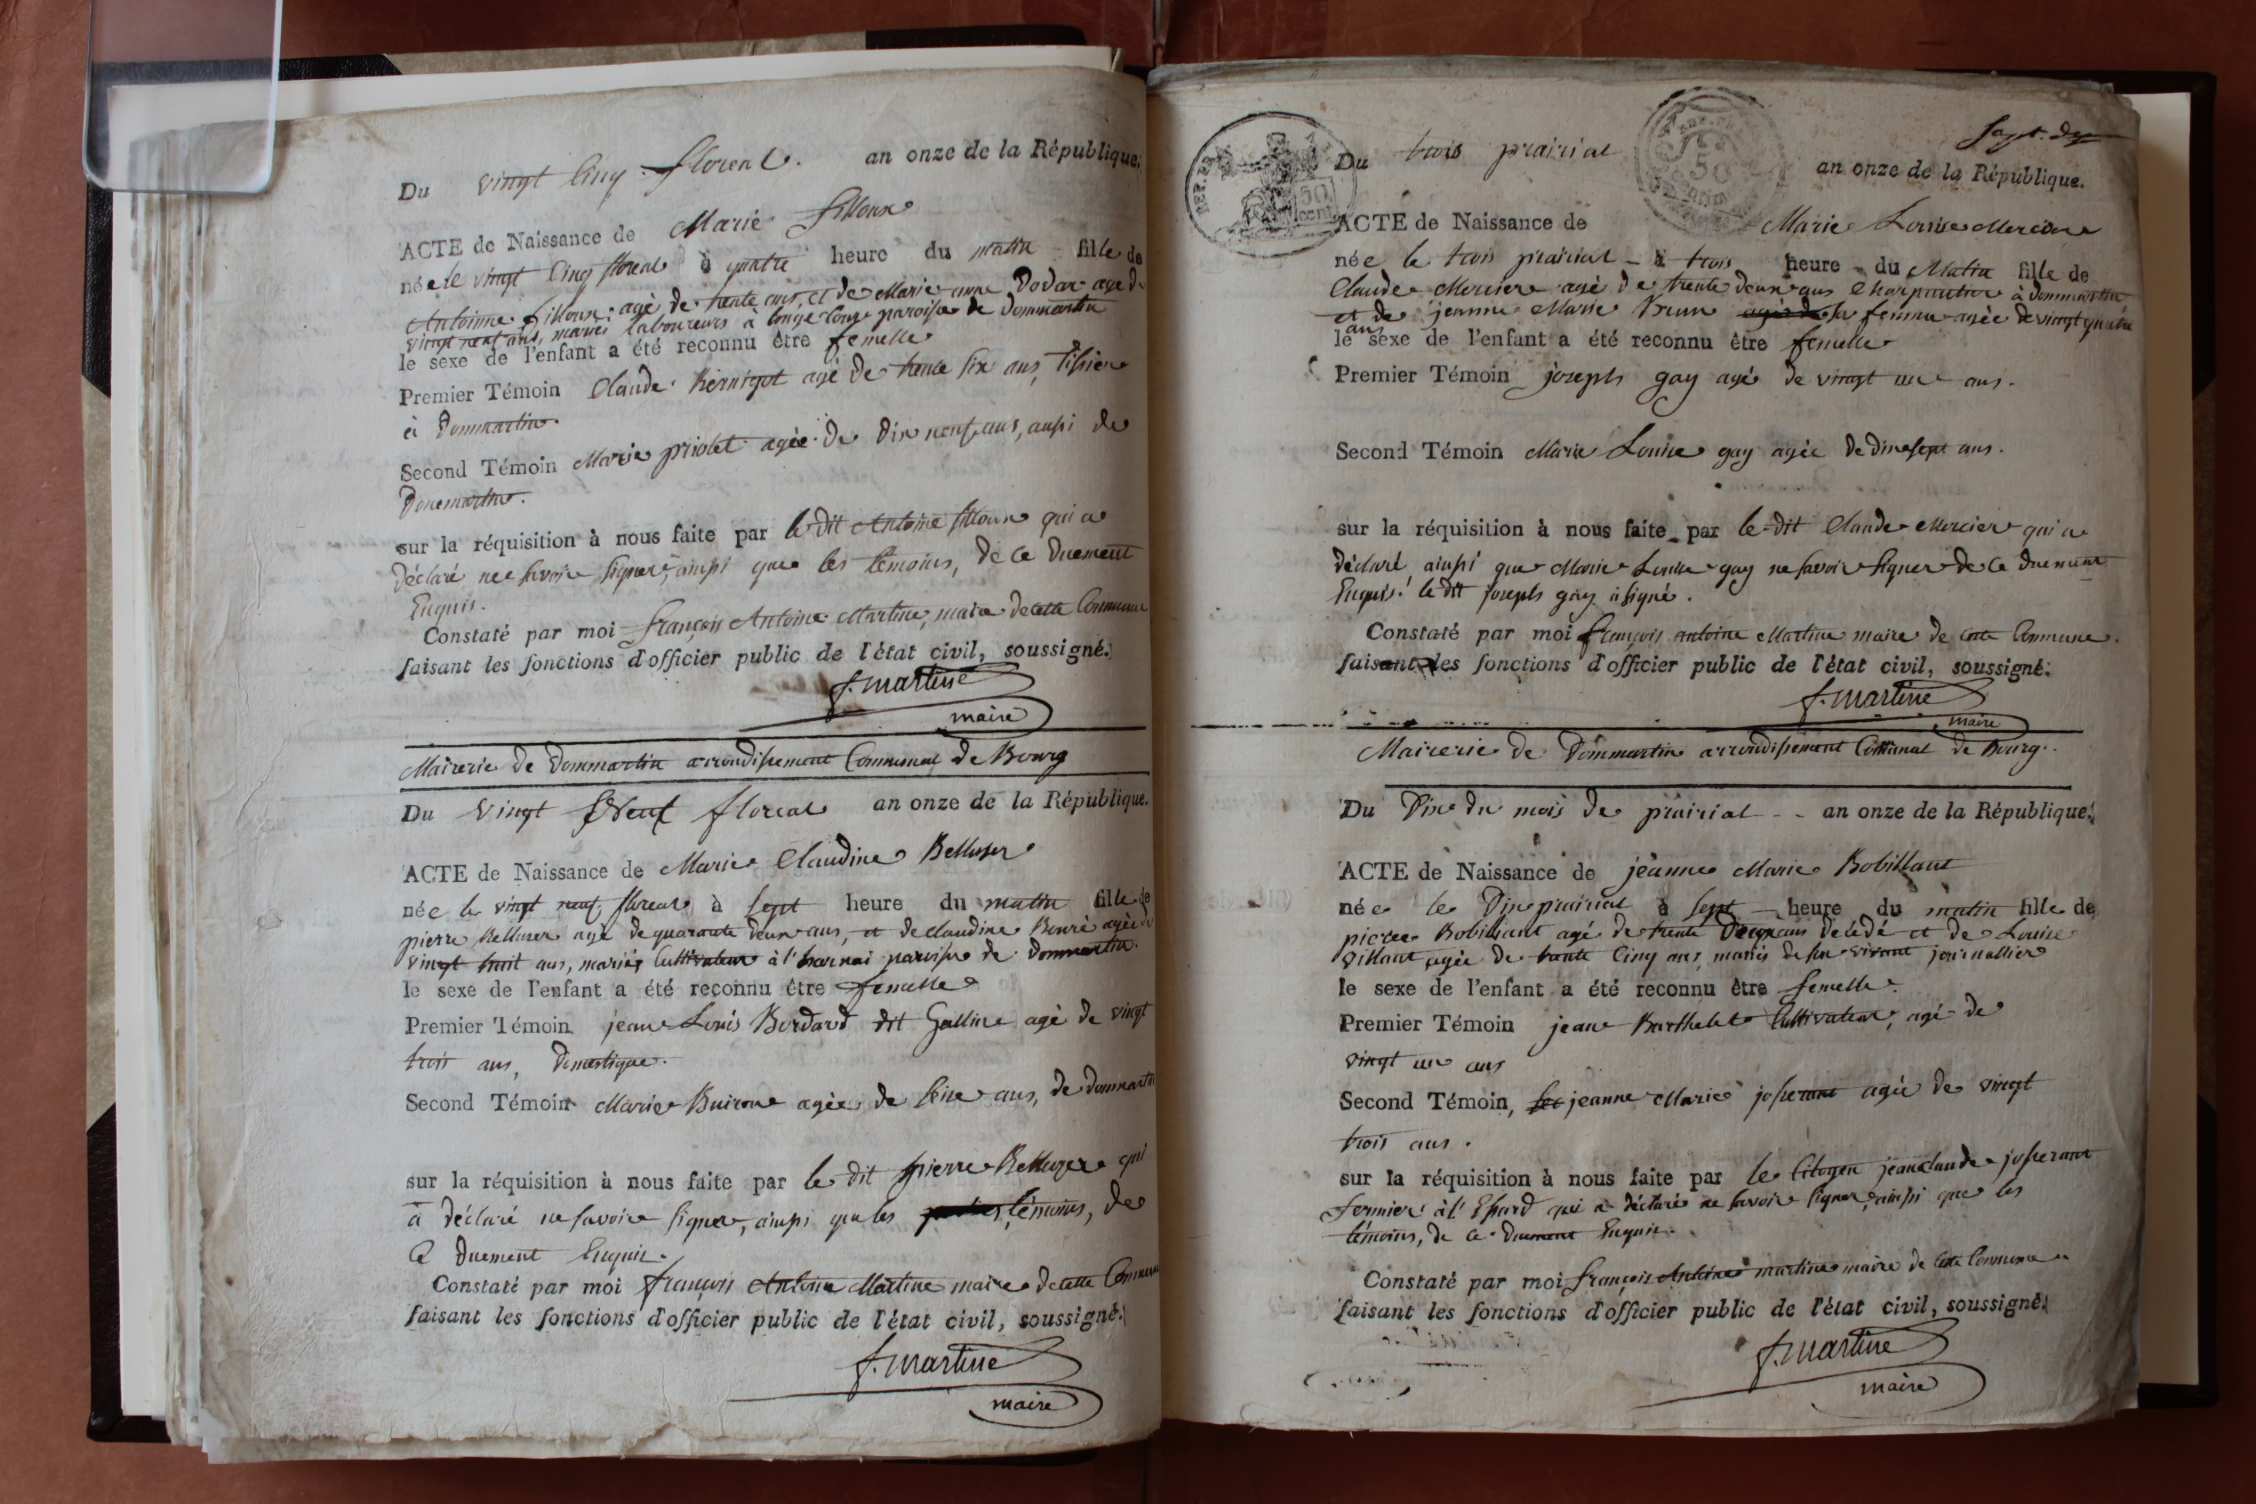 Du vingt Cinq floreal. an onze de la République.
ACTE de Naissance de Marie filloux
née le vingt Cinq floreal à quatre heure du matin fille de
Antoinne filloux agé de trente ans, et de Marie anne Dodar agé de
vingt neuf ans, mariés laboureurs à paroisse de Dommartin
le sexe de l'enfant a été reconnu être femelle
Premier Témoin Claude agé de trente six ans, tissier
à Dommartin
Second Témoin Marie priolet agée de Dix neuf ans, aussi de
Dommartin.
sur la réquisition à nous faite par le dit Antoine filloux qui a
Déclaré ne savoir signer, ainsi que les témoins, de ce Duement
Enquis.
Constaté par moi françois Antoine Martine, maire de cette Commune
faisant les fonctions d'officier public de l'état civil, soussigné.
f. martine
maire
Mairerie de Dommartin arrondissement Communal de Bourg
Du Vingt Neuf floreal an onze de la République.
ACTE de Naissance de Marie Claudine Belluzer
née le vingt neuf floreal à sept heure du matin fille de
pierre Belluzer agé de quarante deux ans, et de Claudine agée de
vingt huit ans, mariés Cultivateur à paroisse de Dommartin.
le sexe de l'enfant a été reconnu être femelle
Premier Témoin jean Louis Bordard dit Galline agé de vingt
trois ans, Domestique.
Second Témoin Marie Buiron agée de seize ans, de dommartin
sur la réquisition à nous faite par le dit pierre Belluzer qui
a déclaré ne savoir signer, ainsi que les témoins, de
Ce Duement Enquis.
Constaté par moi françois Antoine Martine maire de cette Commune
faisant les fonctions d'officier public de l'état civil, soussigné.
f. martine
maire
50
cent
50
Du trois prairial an onze de la République.
ACTE de Naissance de Marie Louise Mercier
née le trois prairial - à trois heure - du Matin fille de
Claude Mercier agé de trente deux ans Charpentier à dommartin
et de jeanne Marie Brun sa femme agée de vingt quatre
ans
le sexe de l'enfant a été reconnu être femelle
Premier Témoin joseph gay agé de vingt un ans.
Second Témoin Marie Louise gay agée de dix sept ans.
sur la réquisition à nous faite par le dit Claude Mercier qui a
déclaré ainsi que Marie Louise gay ne savoir signer de ce Duement
Enquis. le dit joseph gay a signé.
Constaté par moi françois antoine Martine maire de cette Commune.
faisant les fonctions d'officier public de l'état civil, soussigné.
f. martine
maire
Mairerie de Dommartin arrondissement Communal de Bourg.
Du Dix du mois de prairial - - an onze de la République.
ACTE de Naissance de jeanne Marie Bobillant
née le Dix prairial à sept heure du matin fille de
pierre Bobillant agé de trente ans décédé et de Louise
Villant agée de trente Cinq ans, mariés de son vivant journallier
le sexe de l'enfant a été reconnu être femelle.
Premier Témoin jean Barthelet Cultivateur, agé de
vingt un ans
Second Témoin, jeanne Marie josserant agée de vingt
trois ans.
sur la réquisition à nous faite par le Citoyen jean claude josserant
fermier à l' qui a déclaré ne savoir signer, ainsi que les
témoins, de ce Duement Enquis.
Constaté par moi françois Antoine martine maire de cette Commune
faisant les fonctions d'officier public de l'état civil, soussigné.
f. martine
maire